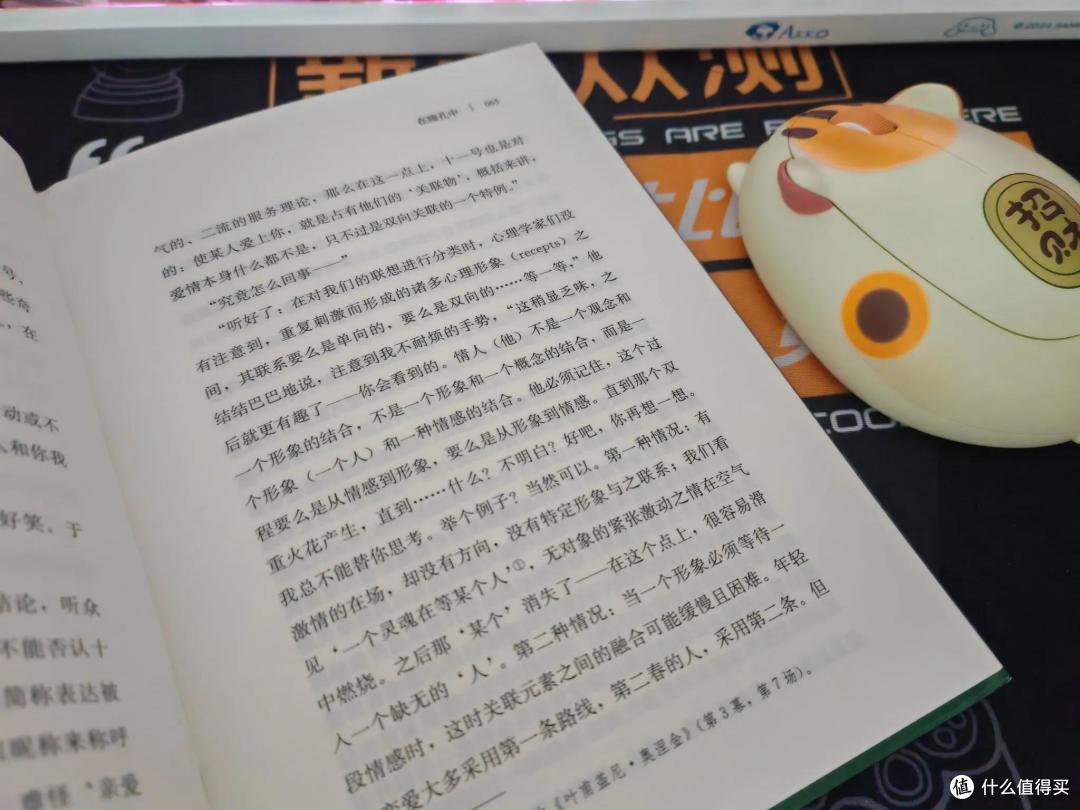 AKKO
© 2024
新 众测
GS ARE
ERE
COO
招
财
在瞳孔中 | 065
气的、二流的服务理论，那么在这一点上，十一号也是对
的：使某人爱上你，就是占有他们的‘关联物’，概括来讲，
爱情本身什么都不是，只不过是双向关联的一个特例。”
“究竟怎么回事——”
“听好了：在对我们的联想进行分类时，心理学家们没
有注意到，重复刺激而形成的诸多心理形象（recepts）之
间，其联系要么是单向的，要么是双向的……等一等，”他
结结巴巴地说，注意到我不耐烦的手势，“这稍显乏味，之
后就更有趣了——你会看到的。情人（他）不是一个观念和
一个形象的结合，不是一个形象和一个概念的结合，而是一
个形象（一个人）和一种情感的结合。他必须记住，这个过
程要么是从情感到形象，要么是从形象到情感。直到那个双
重火花产生，直到……什么？不明白？好吧，你再想一想。
我总不能替你思考。举个例子？当然可以。第一种情况：有
激情的在场，却没有方向，没有特定形象与之联系；我们看
见‘一个灵魂在等某个人’①，无对象的紧张激动之情在空气
中燃烧。之后那‘某个’消失了——在这个点上，很容易滑
入一个缺无的‘人’。第二种情况：当一个形象必须等待一
段情感时，这时关联元素之间的融合可能缓慢且困难。年轻
恋爱大多采用第一条路线，第二春的人，采用第二条。但
《叶甫盖尼·奥涅金》（第3幕，第7场）。
号，
些奇
在
动或不
人和你我
好笑。于
结论，听众
不能否认十
简称表达被
昵称来称呼
‘亲爱
值 什么值得买